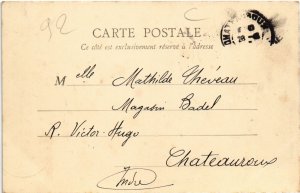 92
CARTE POSTALE
Ce côté est exclusivement réservé à l'adresse
Melle Mathilde Chéveau
Magasin Badel
R. Victor-Hugo
Chateauroux
Indre